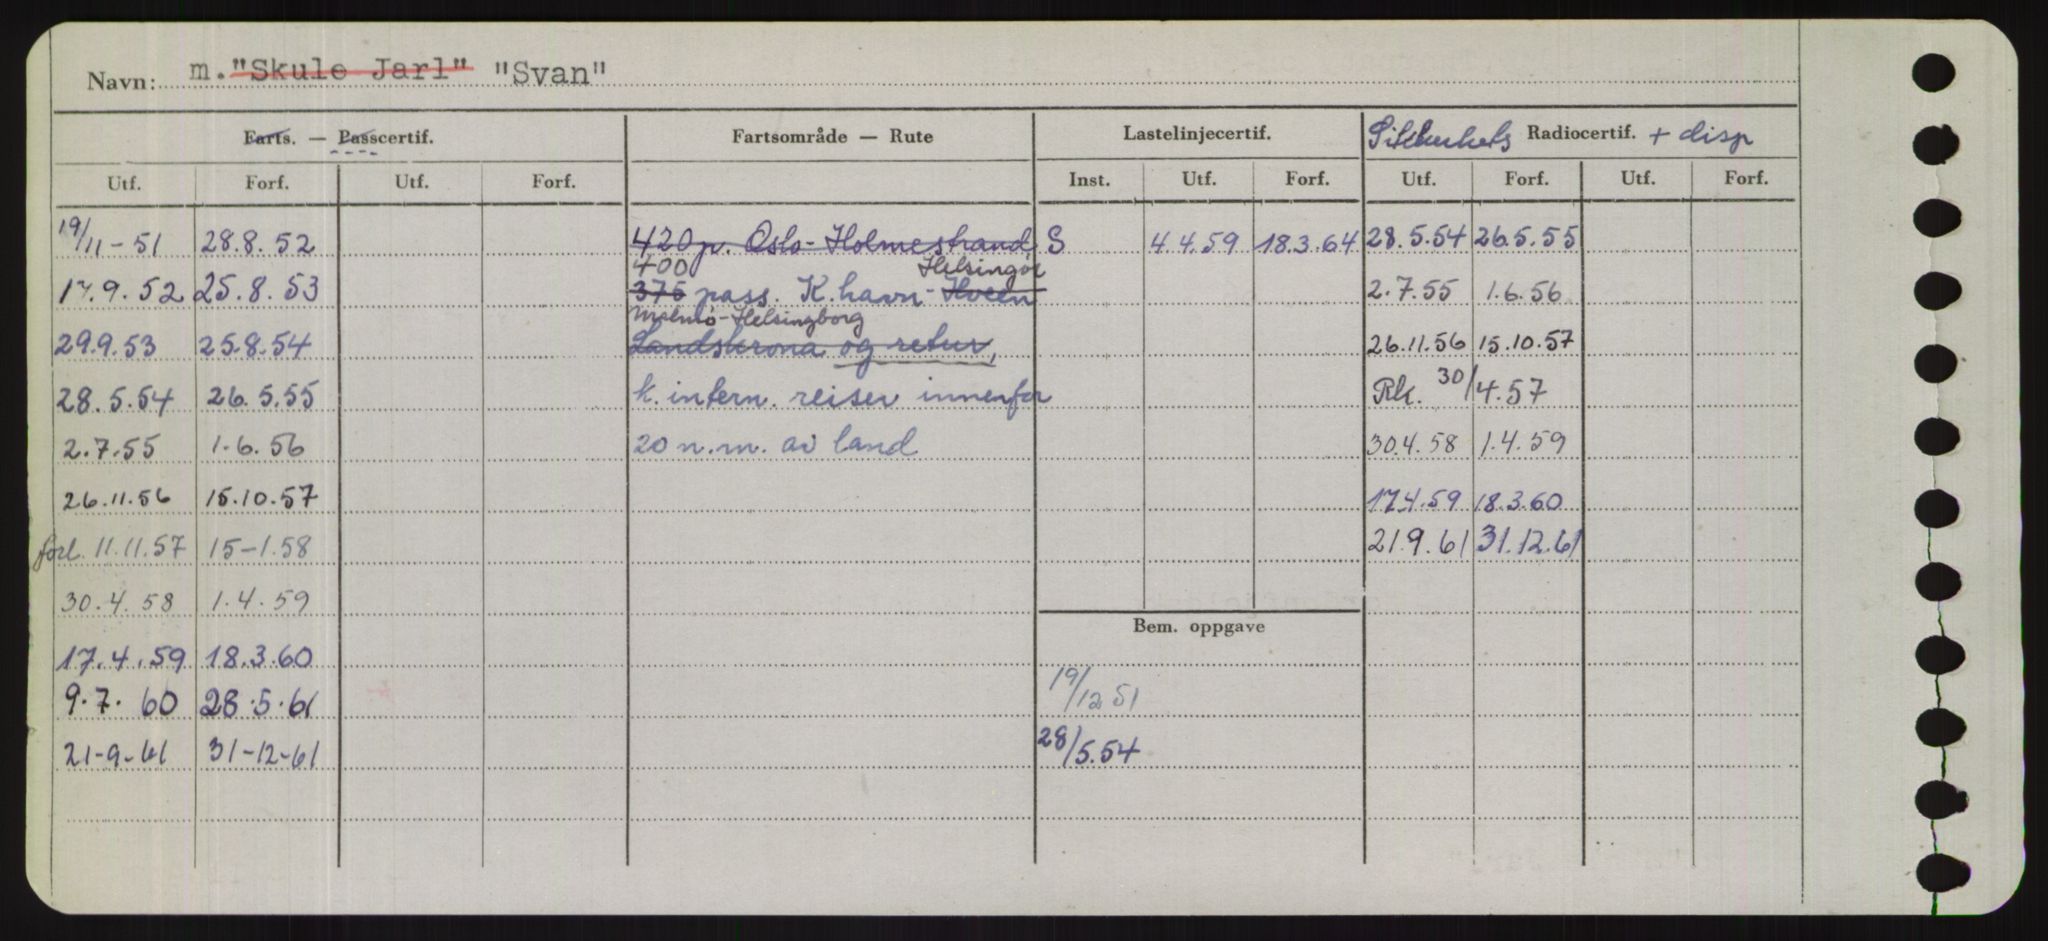 Navn: m. "Skule Jarl" "Svan"
Farts. — Passcertif. Fartsområde — Rute Lastelinjecertif. Sikkerhets Radiocertif. + disp
Utf. Forf. Utf. Forf. Inst. Utf. Forf. Utf. Forf. Utf. Forf.
19/11-51 28.8.52 420 p. Oslo-Holmestrand S 4.4.59 18.3.64 28.5.54 26.5.55
400 Helsingør
17.9.52 25.8.53 375 pass. K.havn - Hveen 2.7.55 1.6.56
Malmö-Helsingborg
29.9.53 25.8.54 Landskrona og retur, 26.11.56 15.10.57
28.5.54 26.5.55 k. intern. reiser innenfor Rk. 30/4.57
2.7.55 1.6.56 20 n.m. av land 30.4.58 1.4.59
26.11.56 15.10.57 17.4.59 18.3.60
forl. 11.11.57 15-1.58 21.9.61 31.12.61
30.4.58 1.4.59
Bem. oppgave
17.4.59 18.3.60
9.7.60 28.5.61 19/12 51
21-9-61 31-12-61 28/5.54